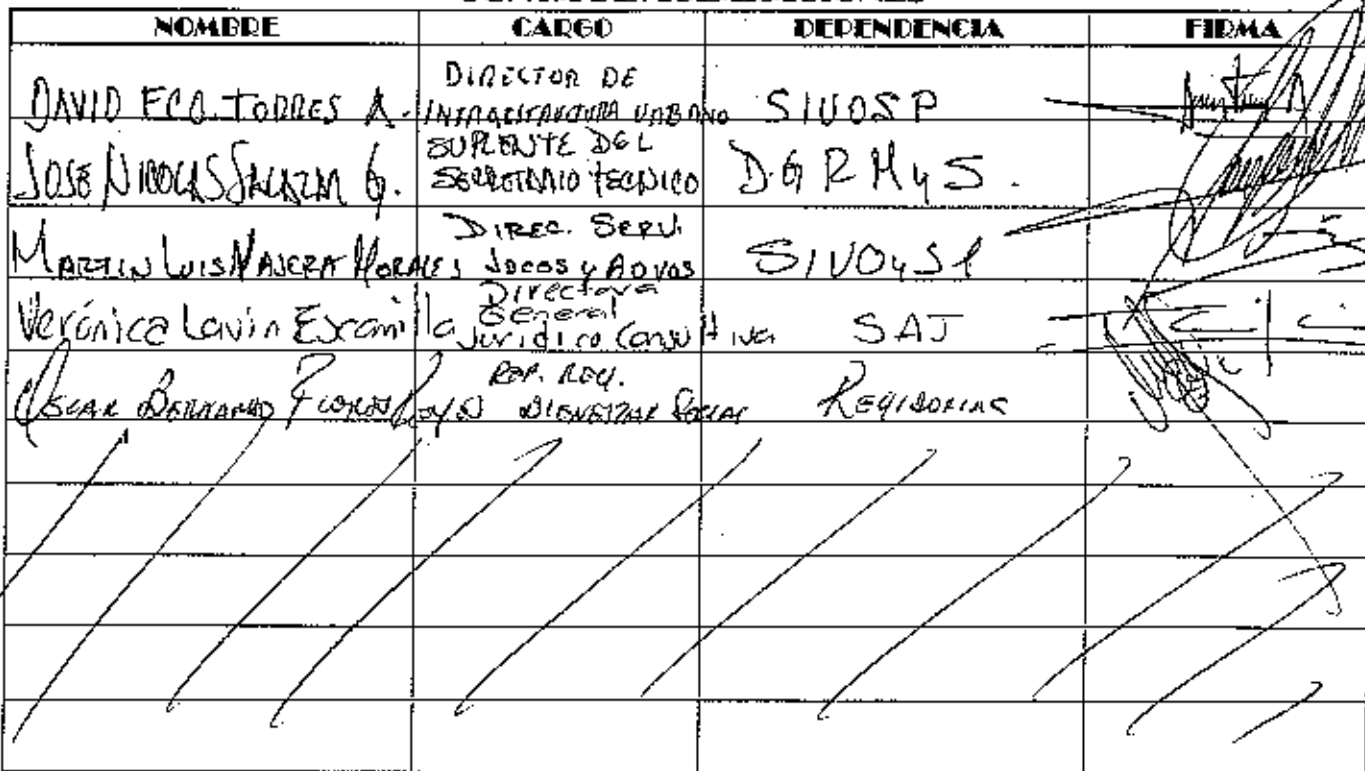 NOMBRE CARGO DEPENDENCIA FIRMA
DAVID FCO. TORRES A. DIRECTOR DE
INFRAESTRUCTURA URBANO SIVOSP
JOSE NICOLAS SALAZAR G. SUPLENTE DEL
SECRETARIO TECNICO D.G R M y S.
MARTIN LUIS NAJERA MORALES DIREC. SERV.
SOCOS y ADVOS SIVOySP
Verónica Lavin Escamilla Directora
General
Jurídico Consultiva SAJ
OSCAR BERNARDO FLORES REP. REG.
BIENESTAR SOCIAL REGIDORIAS